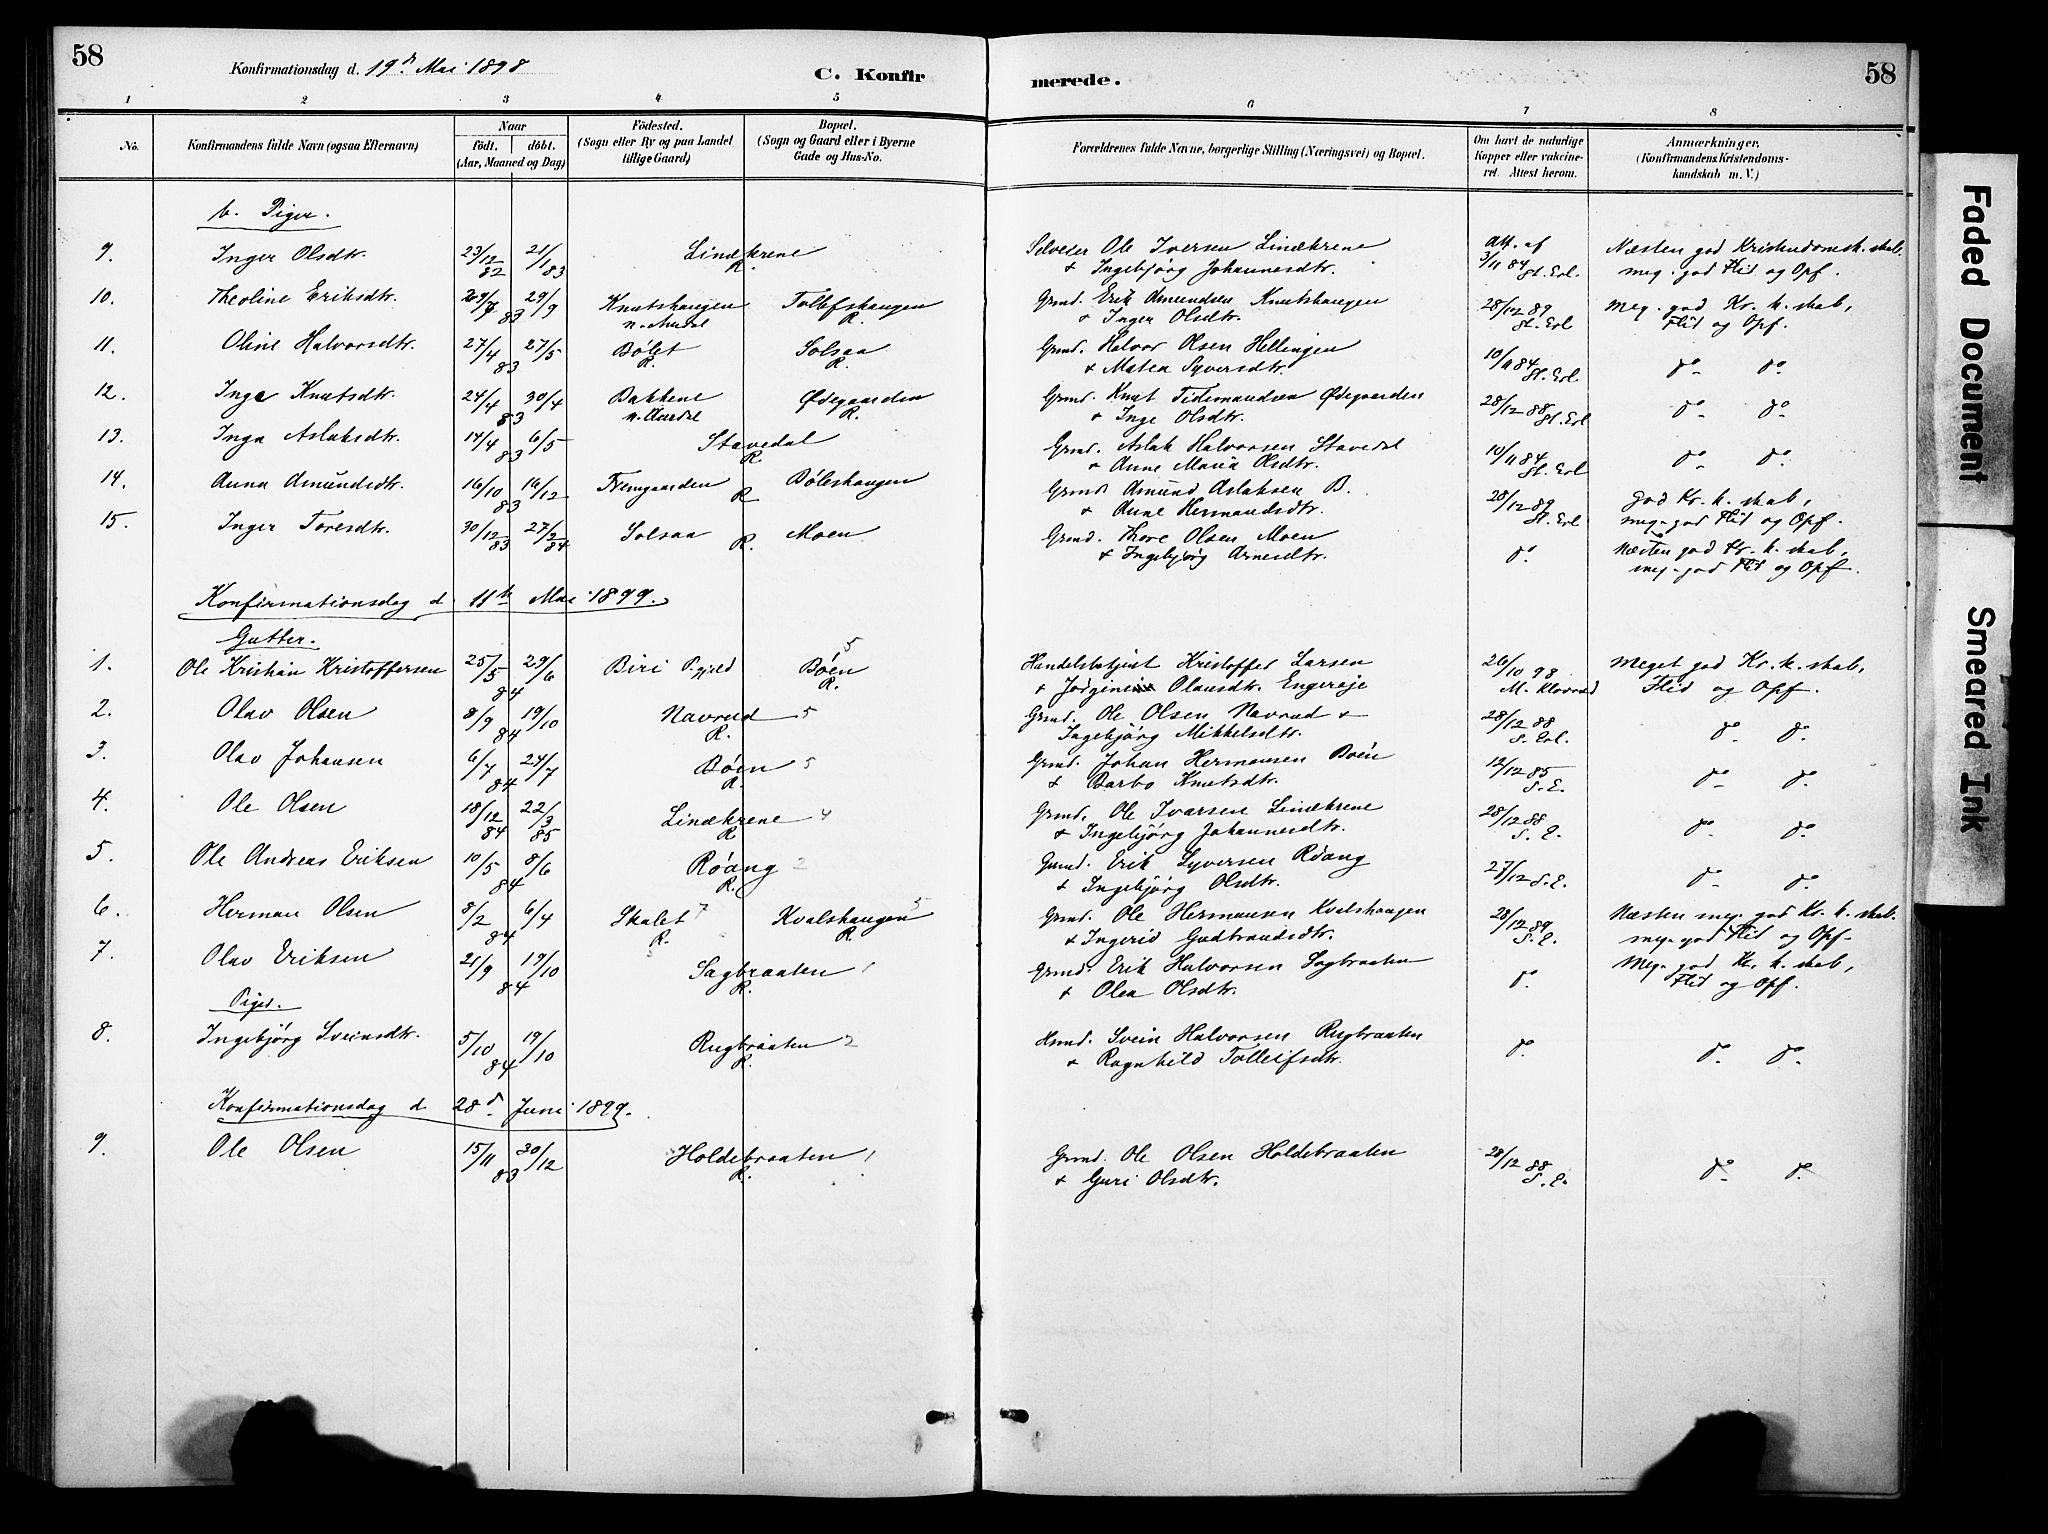 58
Konfirmationsdag d. 19de Mai 1898
C. Konfirmerede.
58
1 2 3 4 5 6 7 8
No.
Konfirmandens fulde Navn (ogsaa Efternavn)
Naar
födt. döbt.
(Aar, Maaned og Dag)
Födested.
(Sogn eller By og paa Landet tillige Gaard)
Bopæl.
(Sogn og Gaard eller i Byerne Gade og Hus-No.
Forældrenes fulde Navne, borgerlige Stilling (Næringsvei) og Bopæl.
Om havt de naturlige Kopper eller vakcineret. Attest herom.
Anmærkninger.
(Konfirmandens Kristendomskundskab m. V.)
b. Piger.
9. Inger Olsdtr. 23/12 82 21/1 83 Lindekrene R. Selveier Ole Iversen Lindekrene Att. af 3/11 84 St. Erl. Næsten god Kristendomsk.skab.
& Ingebjörg Johannesdtr. meg. god Flid og Opf.
10. Theoline Eriksdtr. 29/7 83 29/9 Knutshaugen n. Aurdal Tollefshaugen R. Grmd. Erik Amundsen Knutshaugen 28/12 89 St. Erl Meg. god Kr. k. skab,
& Inger Olsdtr. Flid og Opf.
11. Oline Halvorsdtr. 27/4 83 27/5 Bölet R. Solsaa R. Grmd. Halvor Olsen Hellingen 10/11 84 St. Erl. do do
& Matea Syversdtr.
12. Inge Knutsdtr. 24/4 83 30/4 Bakkene n. Aurdal Ødegaarden R. Grmd. Knut Tidemandsen Ødegaarden 28/12 88 St. Erl do do
& Inge Olsdtr.
13. Inga Aslaksdtr. 14/4 83 6/5 Stavedal R. Grmd. Aslak Halvorsen Stavedal 10/11 84 St. Erl do do
& Anne Maria Olsdtr.
14. Anna Amundsdtr. 16/10 83 16/12 Fremgaarden R Böleshaugen Grmd. Amund Aslaksen B. 28/12 89 St. Erl god Kr. k. skab,
& Anne Hermandsdtr. meg. god Flid og Opf.
15. Inger Toresdtr. 30/12 83 27/2 84 Solsaa R. Moen Grmd. Thore Olsen Moen do. Næsten god Kr. k. skab,
& Ingebjörg Arnesdtr. meg. god Flid og Opf.
Konfirmationsdag d. 11te Mai 1899.
Gutter.
1. Ole Kristian Kristoffersen 25/5 84 29/6 Biri Pgjeld Böen 5 R. Handelsbetjent Kristoffer Larsen 26/10 98 M. Meget god Kr. k. skab,
& Jörgine Olausdtr. Engereje Flid og Opf.
2. Olav Olsen 8/9 84 19/10 Navrud 5 R. Grmd. Ole Olsen Navrud & 28/12 88 S. Erl. do do.
Ingebjörg Mikkelsdtr.
3. Olav Johansen 6/7 84 24/7 Böen 5 R. Grmd. Johan Hermansen Böen 12/12 85 S. E. do do.
& Barbo Knutsdtr.
4. Ole Olsen 18/12 84 22/3 85 Lindekrene 4 R Grmd. Ole Ivarsen Lindekrene 28/12 88 S. E. do do.
& Ingebjörg Johannesdtr.
5. Ole Andreas Eriksen 10/5 84 8/6 Röang 2 R. Grmd. Erik Syversen Röang 27/12 S. E. do do.
& Ingebjörg Olsdtr.
6. Herman Olsen 8/2 84 6/4 Skalet 7 R. Kvalshaugen 5 R. Grmd. Ole Hermansen Kvalshaugen 28/12 89 S. E. Næsten meg. god Kr. k. skab.
& Ingerid Gudbrandsdtr. meg. god Flid og Opf.
7. Olav Eriksen 21/9 84 19/10 Sagbraaten 1 R. Grmd. Erik Halvorsen Sagbraaten do. Meg. god Kr. k. skab,
& Olea Olsdtr. Flid og Opf.
Piger.
8. Ingebjörg Sveinsdtr. 5/10 84 19/10 Rugbraaten 2 R. Hsmd. Svein Halvorsen Rugbraaten do. do do.
& Ragnhild Tolleifsdtr.
Konfirmationsdag d. 28de Juni 1899.
9. Ole Olsen 15/11 83 30/12 Holdebraaten 1 R. Grmd. Ole Olsen Holdebraaten 28/12 88 S. E. do do.
& Guri Olsdtr.
Faded Document
Smeared Ink